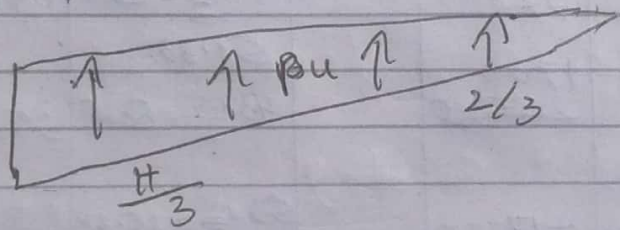 βu
2/3
H/3